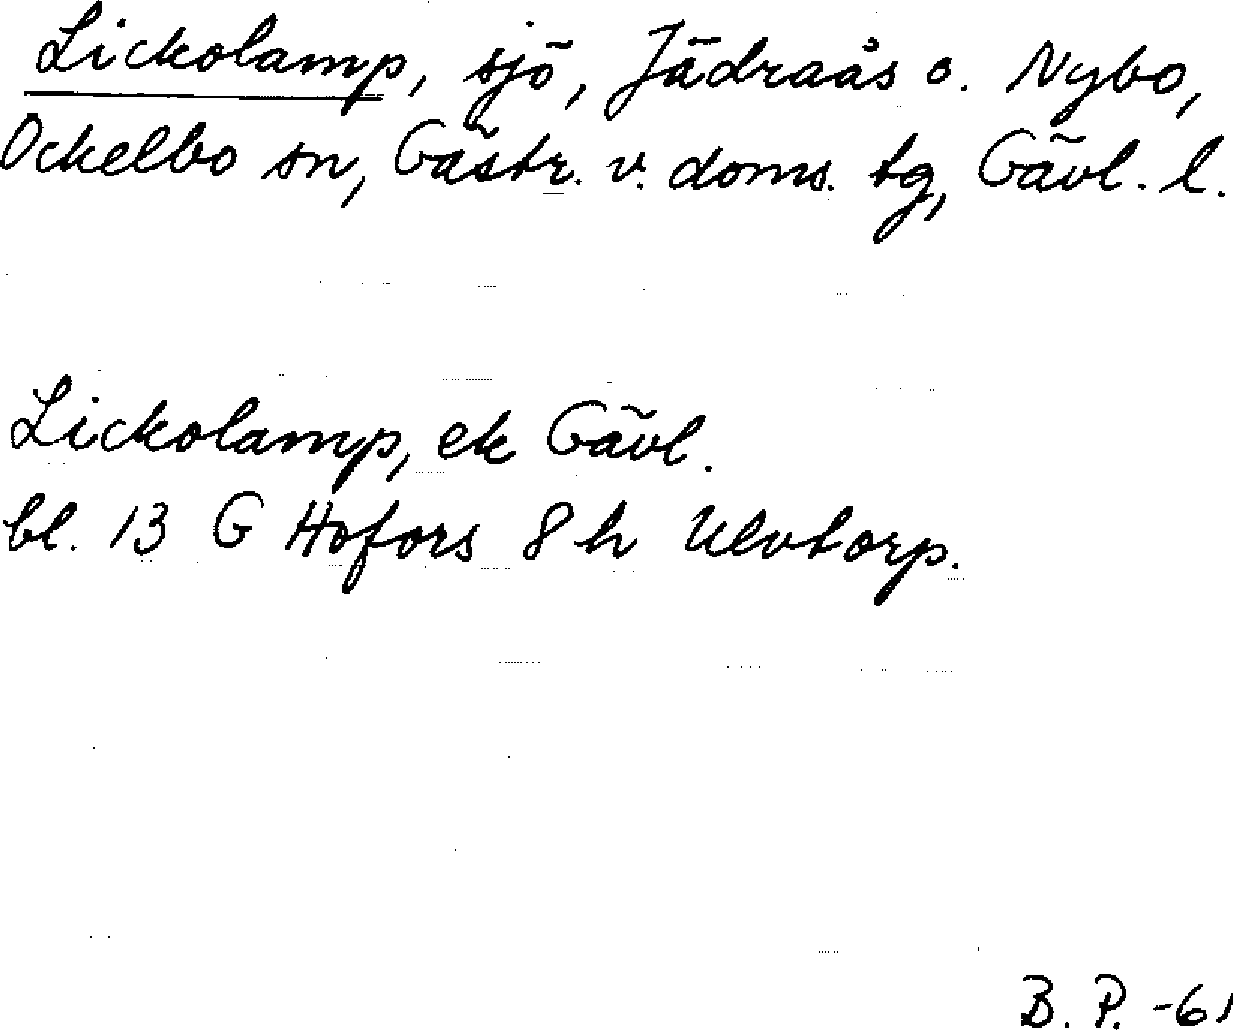 Lickolamp, sjö, Jädraås o. Nybo,
Ockelbo sn, Gästr. v. doms. tg, Gävl. l.
Lickolamp, ek Gävl.
bl. 13 G Hofors 8 h Ulvtorp.
B. P. -61